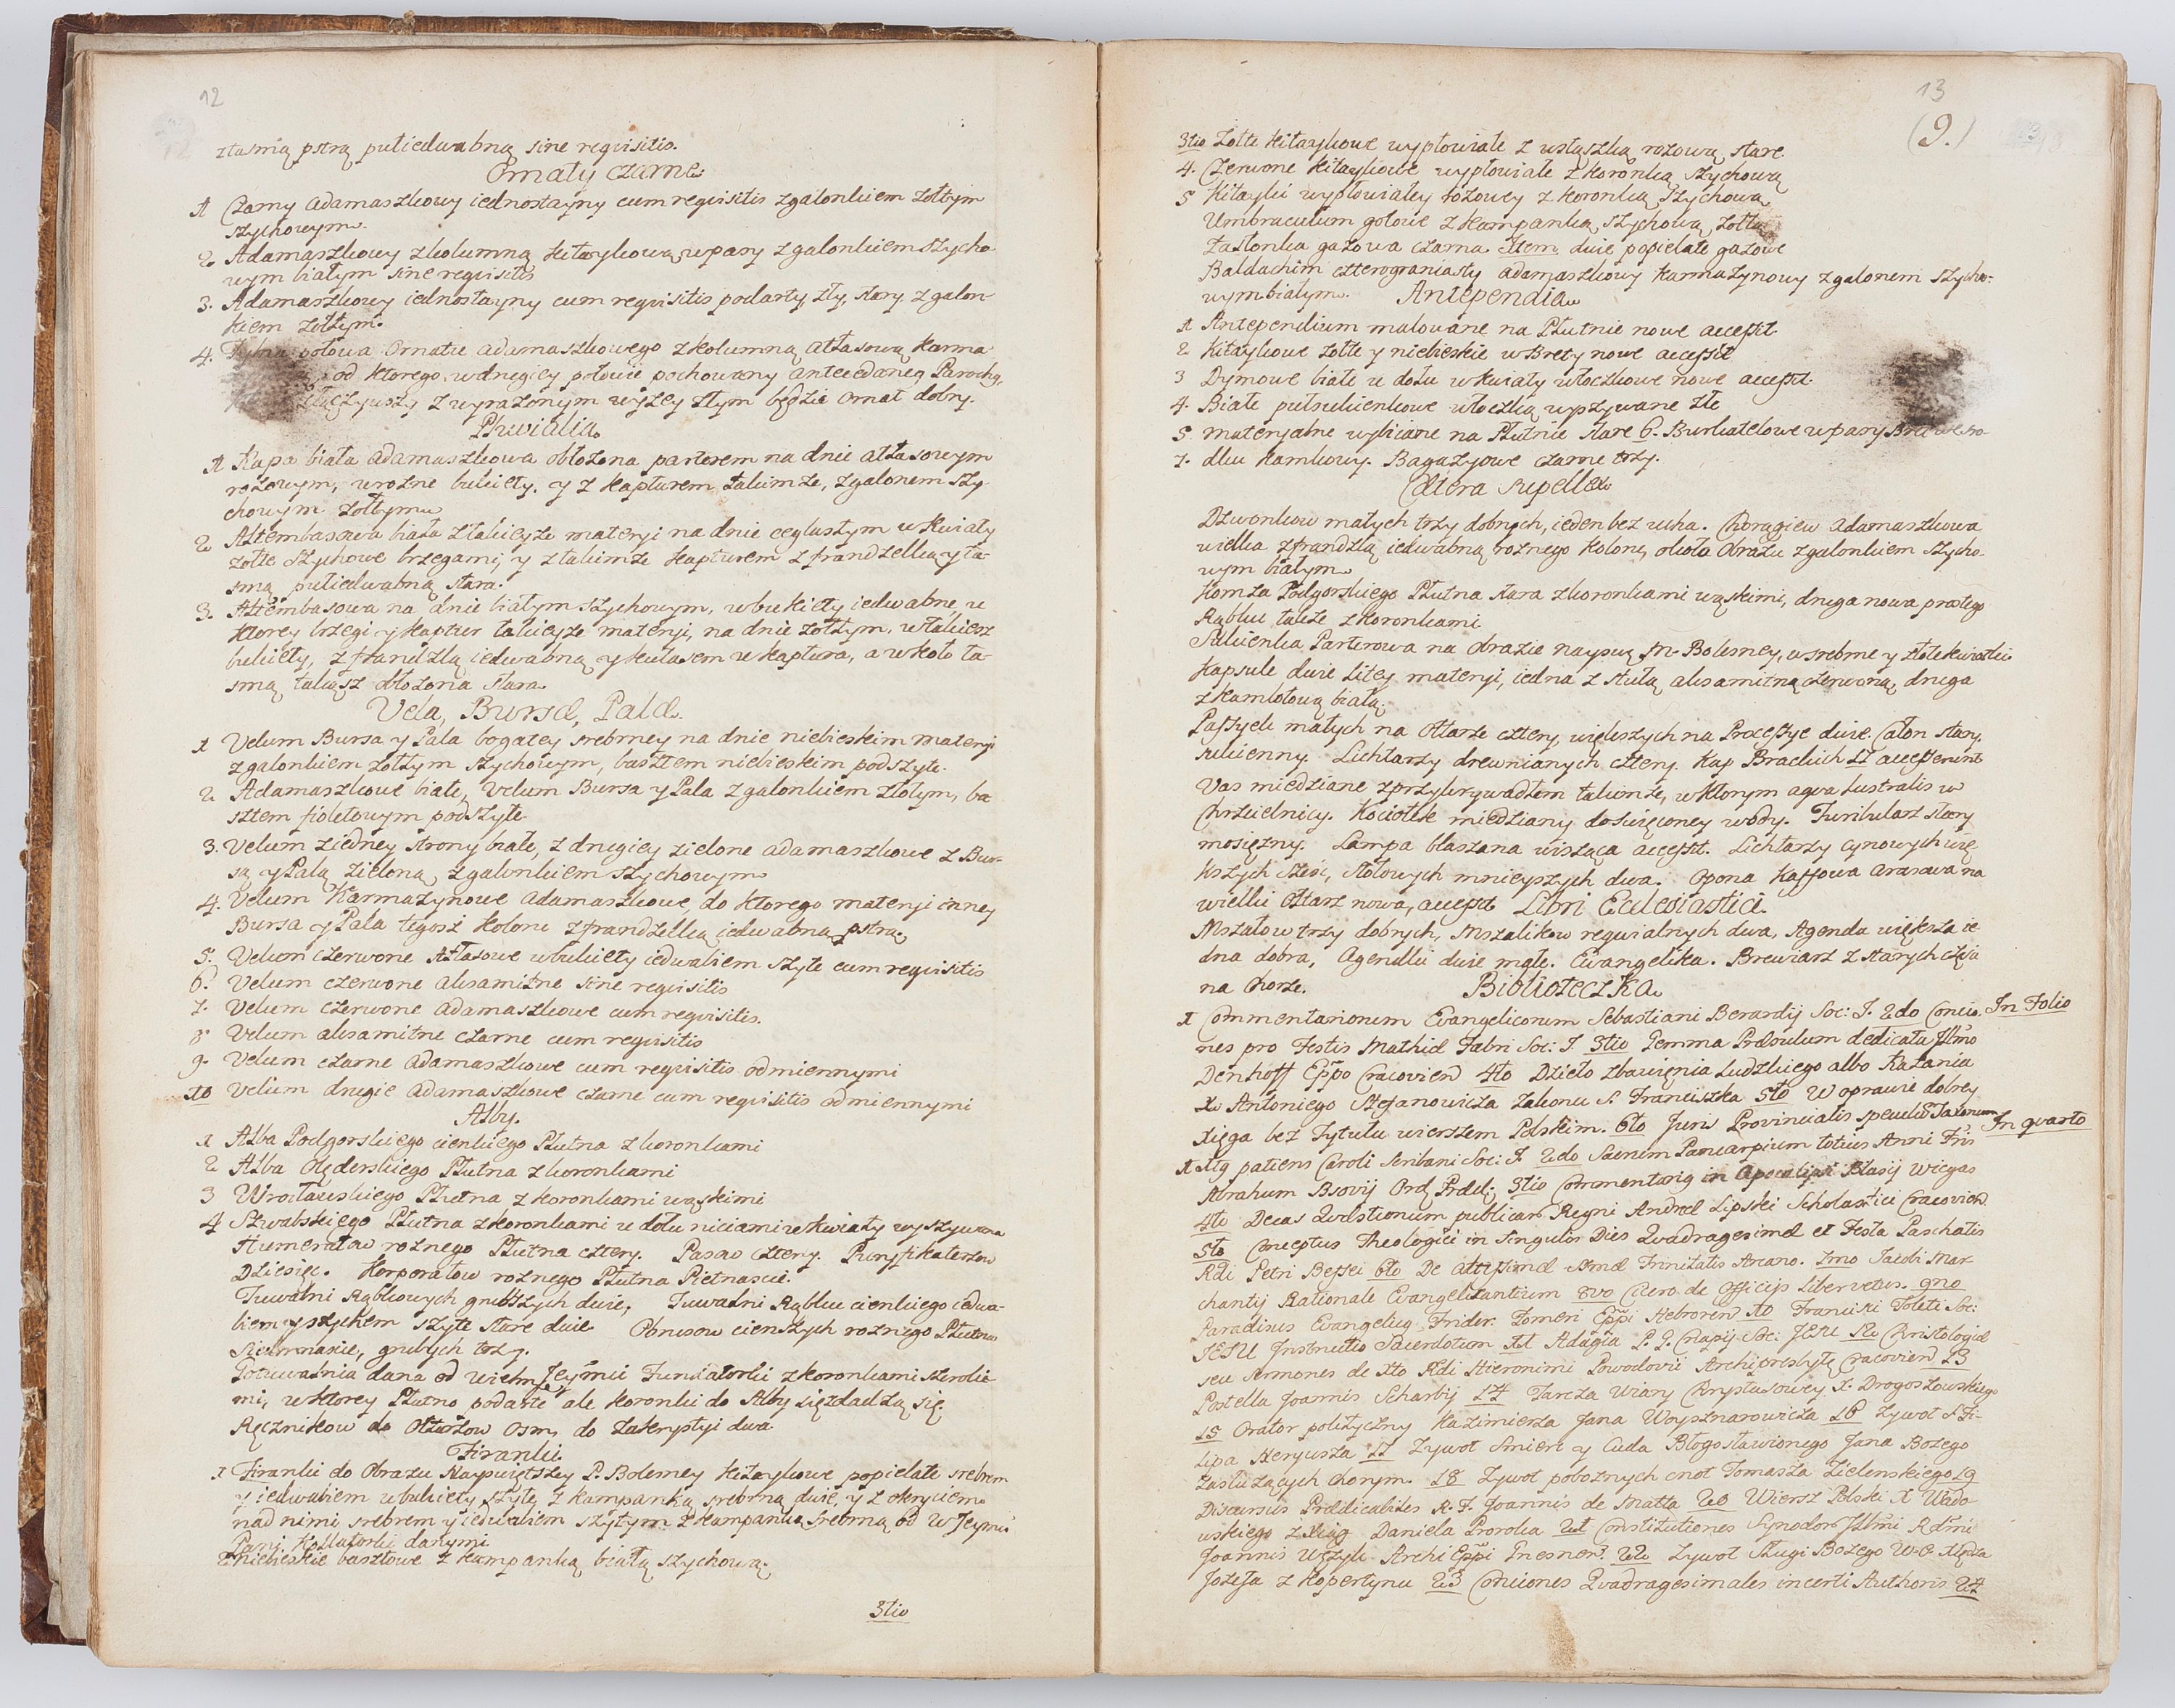 12
z tasmą pstrą pułiedwabną sine requisitis.
Ornaty czarne.
1 Czarny Adamaszkowy iednostayny cum requisitis z galonkiem żołtym
szychowym.
2 Adamaszkowy z kolumną kitaykową w pasy z galonkiem szycho-
wym białym sine requisitis
3. Adamaszkowy iednostayny cum requisitis podarty, zły, stary z galon-
kiem żołtym.
4. połowa Ornatu adamaszkowego z kolumną atłasową Karma
od ktorego w drugiey połowie pochowany antecedanea Parocha,
złączywszy z wyrażonym wyzey złym będzie Ornat dobry.
Pluvialia.
1 Kapa biała adamaszkowa obłożona parterem na dnie atłasowym
rożowym, w rożne bukiety, y z Kapturem takimze, z galonem szy-
chowym żołtym
2 Altembasowa biała z takieyże materyi na dnie ceglastym w kwiaty
żołte szychowe brzegami, y z takimże kapturem z frandzelką y ta-
smą pułiedwabną stara.
3. Altembasowa na dnie białym szychowym, w bukiety iedwabne, u
ktorey brzegi y kaptur takieyże materyi, na dnie żołtym, w takież
bukiety, z frandzlą iedwabną y kutasem u kaptura, a w koło ta-
smą takąż obłożona stara.
Vela, Bursæ, Palæ.
1 Velum Bursa y Pala bogatey srebrney na dnie niebieskim materyi
z galonkiem żołtym szychowym, basztem niebieskim podszyte.
2 Adamaszkowe białe, Velum Bursa y Pala z galonkiem złotym, ba
sztem fioletowym podszyte
3. Velum z iedney strony białe, z drugiey zielone adamaszkowe z Bur-
są y Palą zieloną, z galonkiem szychowym
4. Velum Karmazynowe adamaszkowe, do ktorego materyi inney
Bursa y Pala tegoż koloru z frandzelką iedwabną pstrą.
5. Velum czerwone Atłasowe w bukiety iedwabiem szyte cum requisitis
6. Velum czerwone aksamitne sine requisitis
7. Velum czerwone adamaszkowe cum requisitis.
8 Velum aksamitne czarne cum requisitis
9. Velum czarne adamaszkowe cum requisitis odmiennymi
10 Velum drugie adamaszkowe czarne cum requisitis odmiennymi
Alby.
1 Alba Podgorskiego cienkiego Płutna z koronkami
2 Alba Olęderskiego Płutna z koronkami
3 Wrocławskiego Płutna z koronkami wąskimi
4 Szwabskiego Płutna z koronkami u dołu niciami w kwiaty wyszywana
Humerałow rożnego Płutna cztery. Pasow cztery. Puryfikaterzow
Dziesięć. Korporałow rożnego Płutna Pietnascie.
Tuwalni Rąbkowych grubszych dwie, Tuwalni Rąbku cienkiego iedwa-
biem y szychem szyte stare dwie Obrusow cienszych rożnego Płutna
grubych trzy.
Potuwalnia dana od Wielm Jeymci Fundatorki z koronkami szeroki
mi, w ktorey Płutno podarte ale koronki do Alby się zdadzą się
Ręcznikow do Ołtarzow osm, do Zakrystyi dwa
Firanki
1 Firanki do Obrazu Nayswiętszey P. Bolesney kitaykowe popielate srebrem
y iedwabiem w bukiety szyte z kampanką srebrną dwie, y z okryciem
nad nimi srebrem y iedwabiem szytym z kampanką srebrną od W Jeymci
Pani Kollatorki danymi
2 niebieskie basztowe z kampanką białą szychową.
3tio
13
(9.)
3tio żołte kitaykowe wypłowiałe z wstąszką rożową stare
4. Czerwone kitaykowe wypłowiałe z koronką szychową
5 Kitayki wypłowiałey rożowey z koronką szychową
Umbraculum gotowe z kampanką szychową żołtą
Zasłonka gazowa czarna Item dwie popielate gazowe
Baldachim czterograniasty adamaszkowy karmazynowy z galonem szycho-
wym białym. Antependia
1 Antependium malowane na Płutnie nowe accessit
2 Kitaykowe żołte y niebieskie w Brety nowe accessit
3 Dymowe białe u dołu w kwiaty włoczkowe nowe accessit.
4. Białe pułsukienkowe włoczką wyszywane złe
5. materyalne wybiiane na Płutnie stare 6. Burkatelowe w pasy
7. dku kamkowy. Bagazyowe czarne trzy.
Cætera supellex
Dzwonkow małych trzy dobrych, ieden bez ucha. Chorągiew adamaszkowa
wielka z frandzlą iedwabną rożnego koloru, około Obrazu z galonkiem szycho-
wym białym
Komża Podgorskiego Płutna stara z koronkami wąskimi, druga nowa prostego
Rąbku także z koronkami
Sukienka Parterowa na Obrazie naysw. M. Bolesney, w srebrne y złote kwiatki
Kapsule dwie litey materyi, iedna z stułą aksamitną czerwoną, druga
z kamlotową białą.
Passyek małych na Ołtarze cztery, większych na Processye dwie. Całon stary,
sukienny. Lichtarzy drewnianych cztery. Kap Brackich 12 accesserunt
Vas miedziane z przykrywadłem takimże, w ktorym aqua Lustralis w
Chrzcielnicy. Kociołek miedziany do święconey wody. Turibularz stary
mosiężny. Lampa blaszana wisząca accessit. Lichtarzy cynowych wię
kszych sześć, stołowych mnieyszych dwa. Opona Kassowa arasowa na
wielki Ołtarz nowa, accessit Libri Ecclesiastici.
Mszałow trzy dobrych, Mszalikow requialnych dwa, Agenda większa ie
dna dobra, Agendki dwie małe. Ewangelika. Brewiarz z starych część
na Chorze. Biblioteczka.
1 Commentariorum Evangelicorum Sebastiani Berardij Soc: J. 2do Concio- In Folio
nes pro Festis Mathiæ Fabri Soc: J 3tio Gemma Præsulum dedicata Illmo
Denhoff Eppo Cracovien 4to Dzieło zbawienia Ludzkiego albo Kazania
X. Antoniego Stefanowicza Zakonu S. Franciszka 5to W oprawie dobrey
Xięga bez Tytułu wierszem Polskim. 6to Juris Provincialis speculum Saxonum In quarto
1 Xtq patiens Caroli Scribani Soc: J. 2do Sacrum Pancarpium totius Anni Fris
Abrahum Bzovij Ord Præd; 3tio Commentariq in Apocalipsi Blasij Wiegas
4to Decas Quæstionum publicar Regni Andreæ Lipski Scholastici Cracovien
5to Conceptus Theologici in singulos Dies Quadragesimæ et Festa Paschatis
Rdi Petri Bessei 6to De altissimæ Trinitatis Arcano. 7mo Jacobi Mar-
chantij Rationale Evangelizantium 8vo Cicero de Officijs Liber vetus. 9no
Paradisus Evangelicq Frider. Eppi Hebroren 10 Francisci Toleti Soc:
JESU Instructio Sacerdotum 11 Adagia P. G. Cnapij Soc: JESU 12 Christologiæ
seu Sermones de Xto Rdi Hieronimi Powodovii Archipresbyte Cracovien 13
Postella Joannis Scharbij 14 Tarcza Wiary Chrystusowey X. Drogoszowskiego
15 Orator polityczny Kazimierza Jana Woysznarowicza 16 Zywot S Fi-
lipa Neryusza 17 Zywot Smierć y Cuda Błogosławionego Jana Bożego
służących chorym. 18 Zywot pobożnych cnot Tomasza Zielenskiego 19
Discursus Prædicabiles R. F. Joannis de Matta 20 Wiersz Polski X Wado-
wskiego z Xiąg Daniela Proroka 21 Constitutiones Synodor Illmi Rdmi
Joannis Wężyk Archi Eppi Gnesnen. 22 Zywot Sługi Bożego W. O. Xiędza
Jozefa z Kopertynu 23 Conciones Quadragesimales incerti Authoris 24